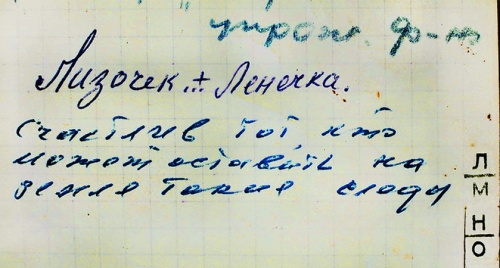 упрож. ф-т
Лизочек + Ленечка.
счастлив тот кто
может оставить на
земле такие следы
Л
М
Н
О